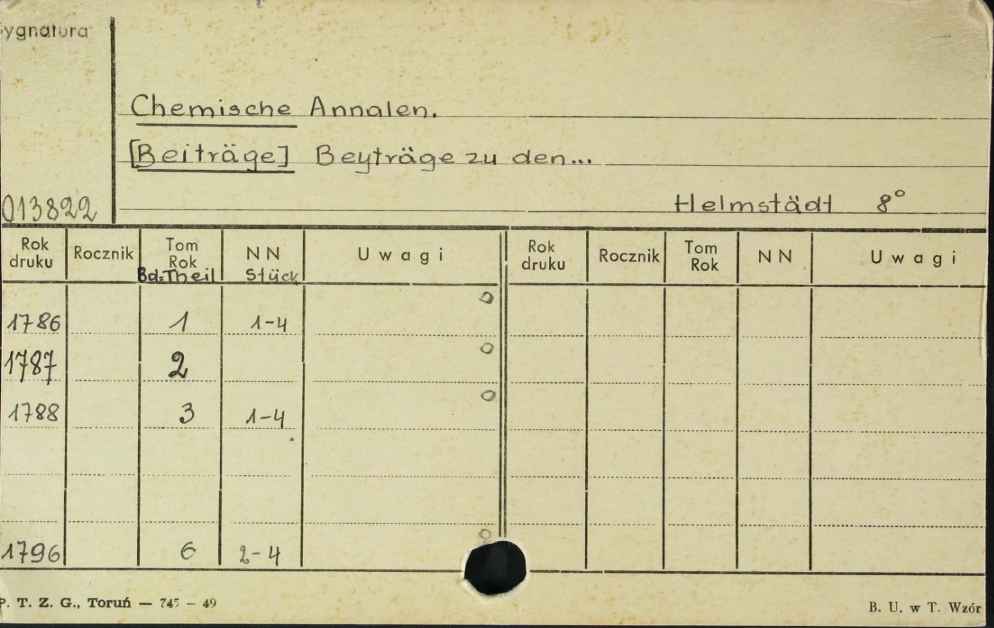 ygnatura
Chemische Annalen.
[Beiträge] Beyträge zu den...
013822
Helmstädt 8°
Rok druku Rocznik Tom Rok Bd.Theil N N Stück Uwagi Rok druku Rocznik Tom Rok N N Uwagi
1786 1 1-4
1787 2
1788 3 1-4
1796 6 2-4
P. T. Z. G., Toruń — 745 — 49
B. U. w T. Wzór